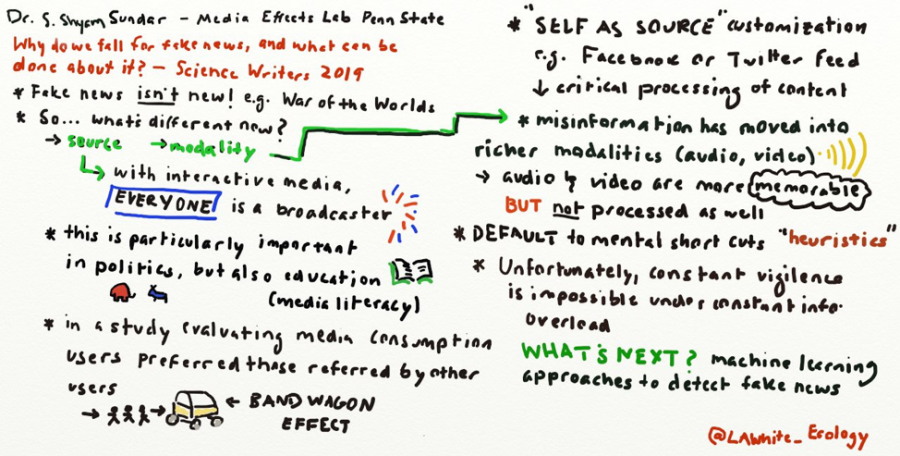 Dr. S. Shyam Sundar - Media Effects Lab Penn State
Why do we fall for fake news, and what can be
done about it? - Science Writers 2019
* Fake news isn't new! e.g. War of the Worlds
* So... what's different now?
→ source → modality
↳ with interactive media,
EVERYONE is a broadcaster
* this is particularly important
in politics, but also education
(media literacy)
* in a study evaluating media consumption
users preferred those referred by other
users
→ → ← BAND WAGON
EFFECT
* "SELF AS SOURCE" customization
e.g. Facebook or Twitter feed
↓ critical processing of content
* misinformation has moved into
richer modalities (audio, video)
→ audio & video are more memorable
BUT not processed as well
* DEFAULT to mental short cuts "heuristics"
* Unfortunately, constant vigilence
is impossible under constant info.
overload
WHAT'S NEXT? machine learning
approaches to detect fake news
@LAWhite_Ecology